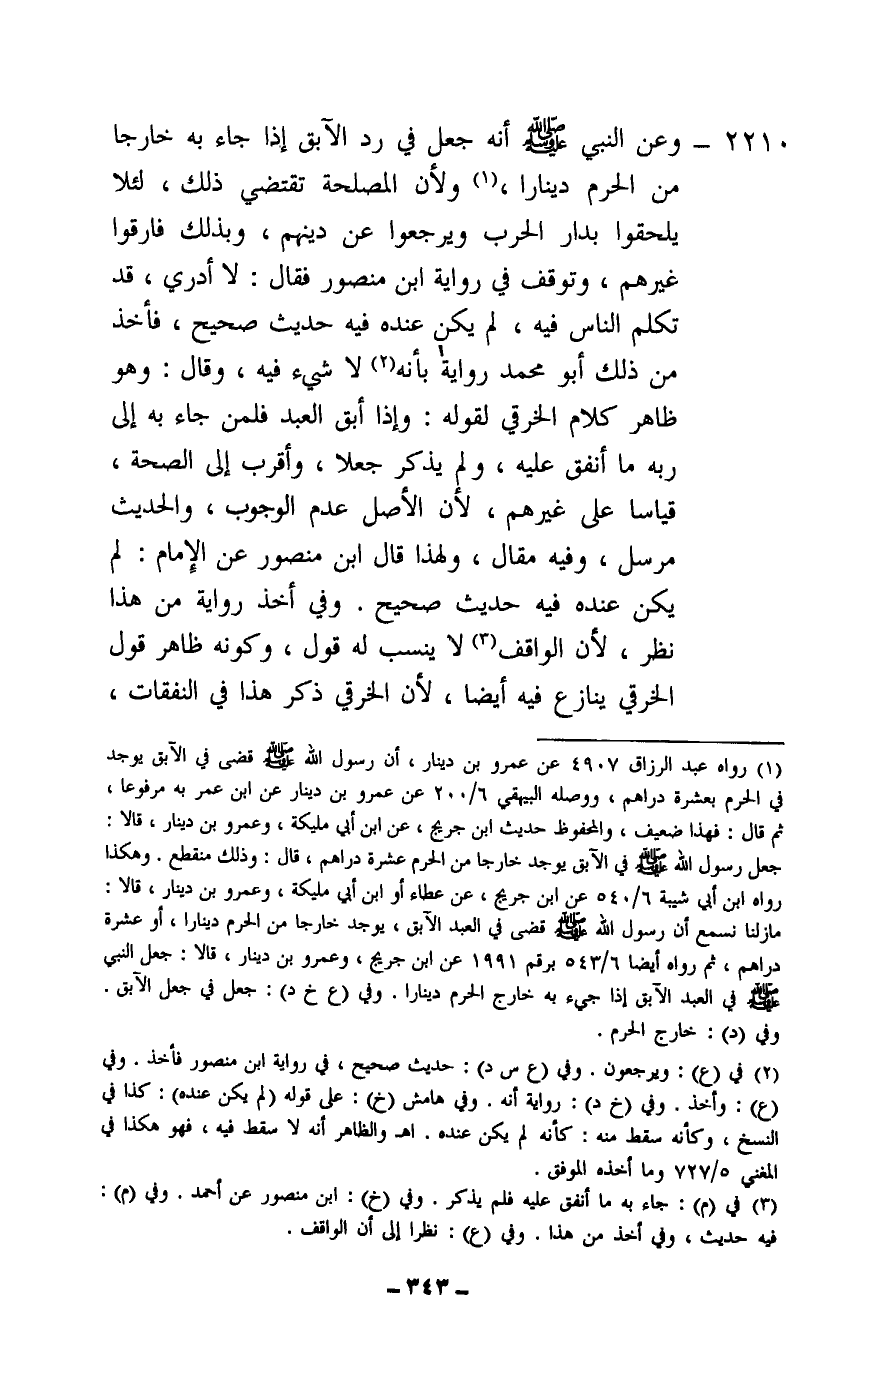 ٢٢١٠ ـ وعن النبي ﷺ أنه جعل في رد الآبق إذا جاء به خارجا
من الحرم دينارا ،(١) ولأن المصلحة تقتضي ذلك ، لئلا
يلحقوا بدار الحرب ويرجعوا عن دينهم ، وبذلك فارقوا
غيرهم ، وتوقف في رواية ابن منصور فقال : لا أدري ، قد
تكلم الناس فيه ، لم يكن عنده فيه حديث صحيح ، فأخذ
من ذلك أبو محمد رواية بأنه(٢) لا شيء فيه ، وقال : وهو
ظاهر كلام الخرقي لقوله : وإذا أبق العبد فلمن جاء به إلى
ربه ما أنفق عليه ، ولم يذكر جعلا ، وأقرب إلى الصحة ،
قياسا على غيرهم ، لأن الأصل عدم الوجوب ، والحديث
مرسل ، وفيه مقال ، ولهذا قال ابن منصور عن الإمام : لم
يكن عنده فيه حديث صحيح . وفي أخذ رواية من هذا
نظر ، لأن الواقف(٣) لا ينسب له قول ، وكونه ظاهر قول
الخرقي ينازع فيه أيضا ، لأن الخرقي ذكر هذا في النفقات ،
(١) رواه عبد الرزاق ٤٩٠٧ عن عمرو بن دينار ، أن رسول الله ﷺ قضى في الآبق يوجد
في الحرم بعشرة دراهم ، ووصله البيهقي ٢٠٠/٦ عن عمرو بن دينار عن ابن عمر به مرفوعا ،
ثم قال : فهذا ضعيف ، والمحفوظ حديث ابن جريج ، عن ابن أبي مليكة ، وعمرو بن دينار ، قالا :
جعل رسول الله ﷺ في الآبق يوجد خارجا من الحرم عشرة دراهم ، قال : وذلك منقطع . وهكذا
رواه ابن أبي شيبة ٥٤٠/٦ عن ابن جريج ، عن عطاء أو ابن أبي مليكة ، وعمرو بن دينار ، قالا :
مازلنا نسمع أن رسول الله ﷺ قضى في العبد الآبق ، يوجد خارجا من الحرم دينارا ، أو عشرة
دراهم ، ثم رواه أيضا ٥٤٣/٦ برقم ١٩٩١ عن ابن جريج ، وعمرو بن دينار ، قالا : جعل النبي
ﷺ في العبد الآبق إذا جيء به خارج الحرم دينارا . وفي (ع خ د) : جعل في جعل الآبق .
وفي (د) : خارج الحرم .
(٢) في (ع) : ويرجعون . وفي (ع س د) : حديث صحيح ، في رواية ابن منصور فأخذ . وفي
(ع) : وأخذ . وفي (خ د) : رواية أنه . وفي هامش (خ) : على قوله (لم يكن عنده) : كذا في
النسخ ، وكأنه سقط منه : كأنه لم يكن عنده . اهـ والظاهر أنه لا سقط فيه ، فهو هكذا في
المغني ٧٢٧/٥ وما أخذه الموفق .
(٣) في (م) : جاء به ما أنفق عليه فلم يذكر . وفي (خ) : ابن منصور عن أحمد . وفي (م) :
فيه حديث ، وفي أخذ من هذا . وفي (ع) : نظرا إلى أن الواقف .
ـ ٣٤٣ ـ